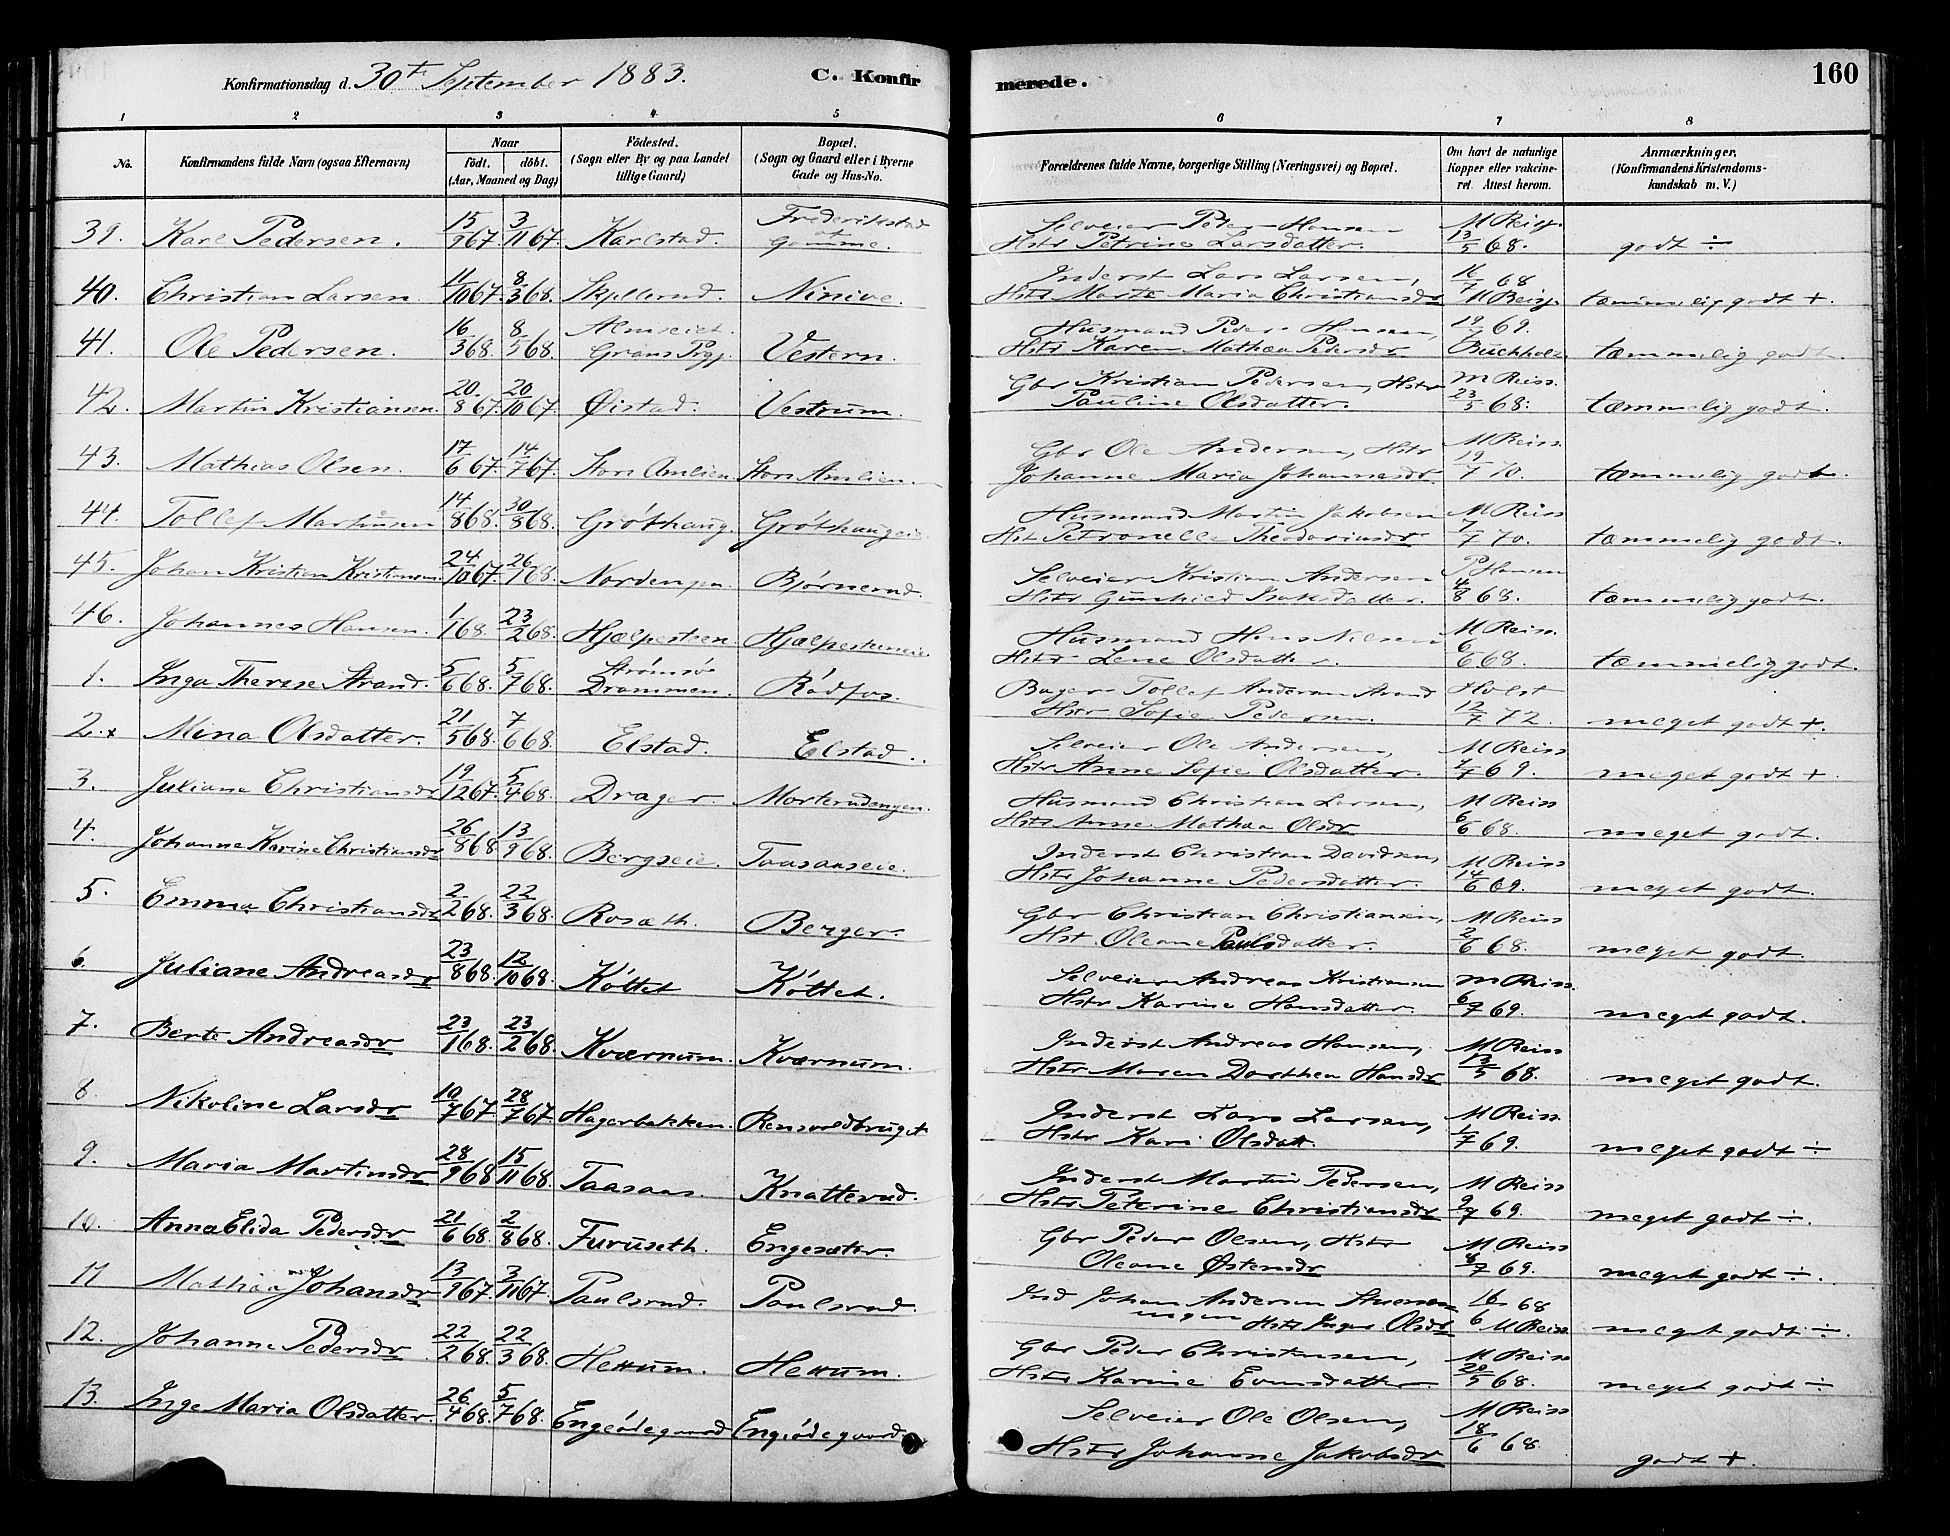 Konfirmationsdag d. 30te September 1883. C. Konfirmerede. 160
1 2 3 4 5 6 7 8
No. Konfirmandens fulde Navn (ogsaa Efternavn) Naar født. døbt. (Aar, Maaned og Dag) Fødested. (Sogn eller By og paa Landet tillige Gaard) Bopæl. (Sogn og Gaard eller i Byerne Gade og Hus-No. Forældrenes fulde Navne, borgerlige Stilling (Næringsvei) og Bopæl. Om havt de naturlige Kopper eller vakcineret. Attest herom. Anmærkninger. (Konfirmandens Kristendomskundskab m. V.)
39. Karl Pedersen. 15/9 67. 3/11 67. Karlstad. Frederikstad Selveier Peder Hansen Hstr Petrine Larsdatter. M Reiss. 13/5 68. godt ÷
40. Christian Larsen 4/10 67. 8/3 68. Skjellerud. Ninive. Inderst Lars Larsen, Hstr Marte Maria Christiansdr 16/7 68 M Reiss. temmelig godt +.
41. Ole Pedersen. 16/3 68. 8/5 68. Grans Prgj. Vestern. Husmand Peder Hansen, Hstr Karen Mathea Pedersdr 19/7 69. Buchholz. tæmmelig godt.
42. Martin Kristiansen. 20/8 67. 20/10 67. Øistad. Vestrum. Gbr Kristian Pedersen, Hstr Pauline Olsdatter. M Reiss. 23/5 68. tæmmelig godt.
43. Mathias Olsen. 17/6 67. 14/7 67. Horn Amlien. Horn Amlien. Gbr Ole Andersen, Hstr Johanne Maria Johannesdr M Reiss. 19/7 70. tæmmelig godt.
44. Tollef Martinsen 14/8 68. 30/8 68. Gróthaug. Gróthaugeie. Husmand Martin Jakobsen Hst Petronelle Theodorinsdr M Reiss 7/7 70. tæmmelig godt.
45. Johan Kristian Kristiansen 24/10 67. 26/1 68. Nordengen. Bjørnerud. Selveier Kristian Andersen Hstr Gunhild Isaksdatter. P Hansen 4/8 68. tæmmelig godt.
46. Johannes Hansen. 1/1 68. 23/2 68. Hjælpesteen. Hjælpesteneie. Husmand Hans Nilsen Hstr Lene Olsdatter. M Reiss. 6/6 68. tæmmelig godt.
1. Inga Therese Strand. 5/6 68. 5/7 68. Strømsø Drammen. Ródfos. Bager Tollef Andersen Strand Hstr Sofie Pedersen. Holst 12/7 72. meget godt +.
2. x Mina Olsdatter. 21/5 68. 7/6 68. Elstad. Elstad. Selveier Ole Andersen, Hstr Anne Sofie Olsdatter. M Reiss 1/7 69. meget godt +
3. Juliane Christiansdr 19/12 67. 5/4 68. Drager. Morterudengen. Husmand Christian Larsen, Hstr Anne Mathea Olsdr M Reiss 6/6 68. meget godt.
4. Johanne Karine Christiansdr 26/8 68. 13/9 68. Bergseie. Taasaaseie. Inderst Christian Davidsen, Hstr Johanne Pedersdatter. M Reiss 14/6 69. meget godt.
5. Emma Christiansdr 2/2 68. 22/3 68. Rosæth. Berger. Gbr Christian Christiansen, Hst. Oleane Paulsdatter. M Reiss 2/6 68. meget godt.
6. Juliane Andreasdr 23/8 68. 12/10 68. Kóltet Kóltet. Selveier Andreas Kristiansen Hstr Karine Hansdatter. M Reiss. 6/7 69. meget godt.
7. Berte Andreasdr 23/1 68. 23/2 68. Kværnum. Kværnum. Inderst Andreas Hansen, Hstr Maren Dorthea Hansdr M Reiss 13/5 68. meget godt.
8. Nikoline Larsdr 10/7 67. 28/7 67. Hagerbakken. Rensvoldbruget Inderst Lars Larsen, Hstr Kari Olsdatt. M Reiss 1/7 69. meget godt ÷
9. Maria Martinsdr 28/9 68 15/11 68. Taasaas. Knatterud. Inderst Martin Pedersen, Hstr Peterine Christiansdr M Reiss 9/7 69. meget godt ÷.
10. Anna Elida Pedersdr 21/6 68. 2/8 68. Furuseth. Engesæter. Gbr Peder Olsen, Hstr Oleane Østensdr M Reiss 8/7 69. meget godt ÷.
11 Mathea Johansdr 13/9 67. 3/10 67. Paulsrud. Paulsrud. Ind Johan Andersen Hstr Inger Olsdr 16/6 68 M Reiss. meget godt ÷.
12. Johanne Pedersdr 22/2 68. 22/3 68. Hekkum. Hekkum. Gbr Peder Christensen, Hstr Karine Evensdatter. M Reiss 20/5 68. meget godt ÷
13. Inge Maria Olsdatter 26/4 68. 5/7 68. Engeódegaard Engeódegaard Selveier Ole Olsen, Hstr Johanne Jakobsdr M Reiss 18/6 68 godt +.